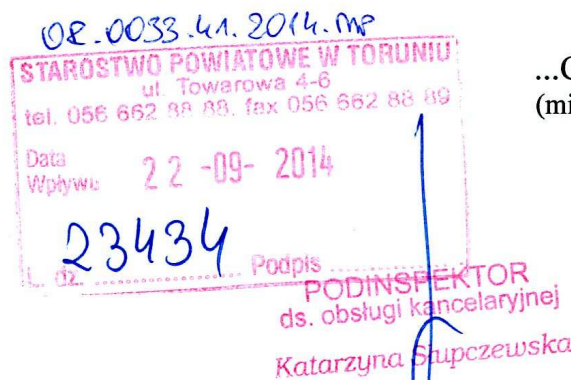 OR.0033.41.2014.MP
STAROSTWO POWIATOWE W TORUNIU
ul. Towarowa 4-6
tel. 056 662 88 88, fax 056 662 88 89
Data
Wpływu 22 -09- 2014
23434
L. dz. .................. Podpis ..............
PODINSPEKTOR
ds. obsługi kancelaryjnej
Katarzyna Słupczewska
...C
(mi